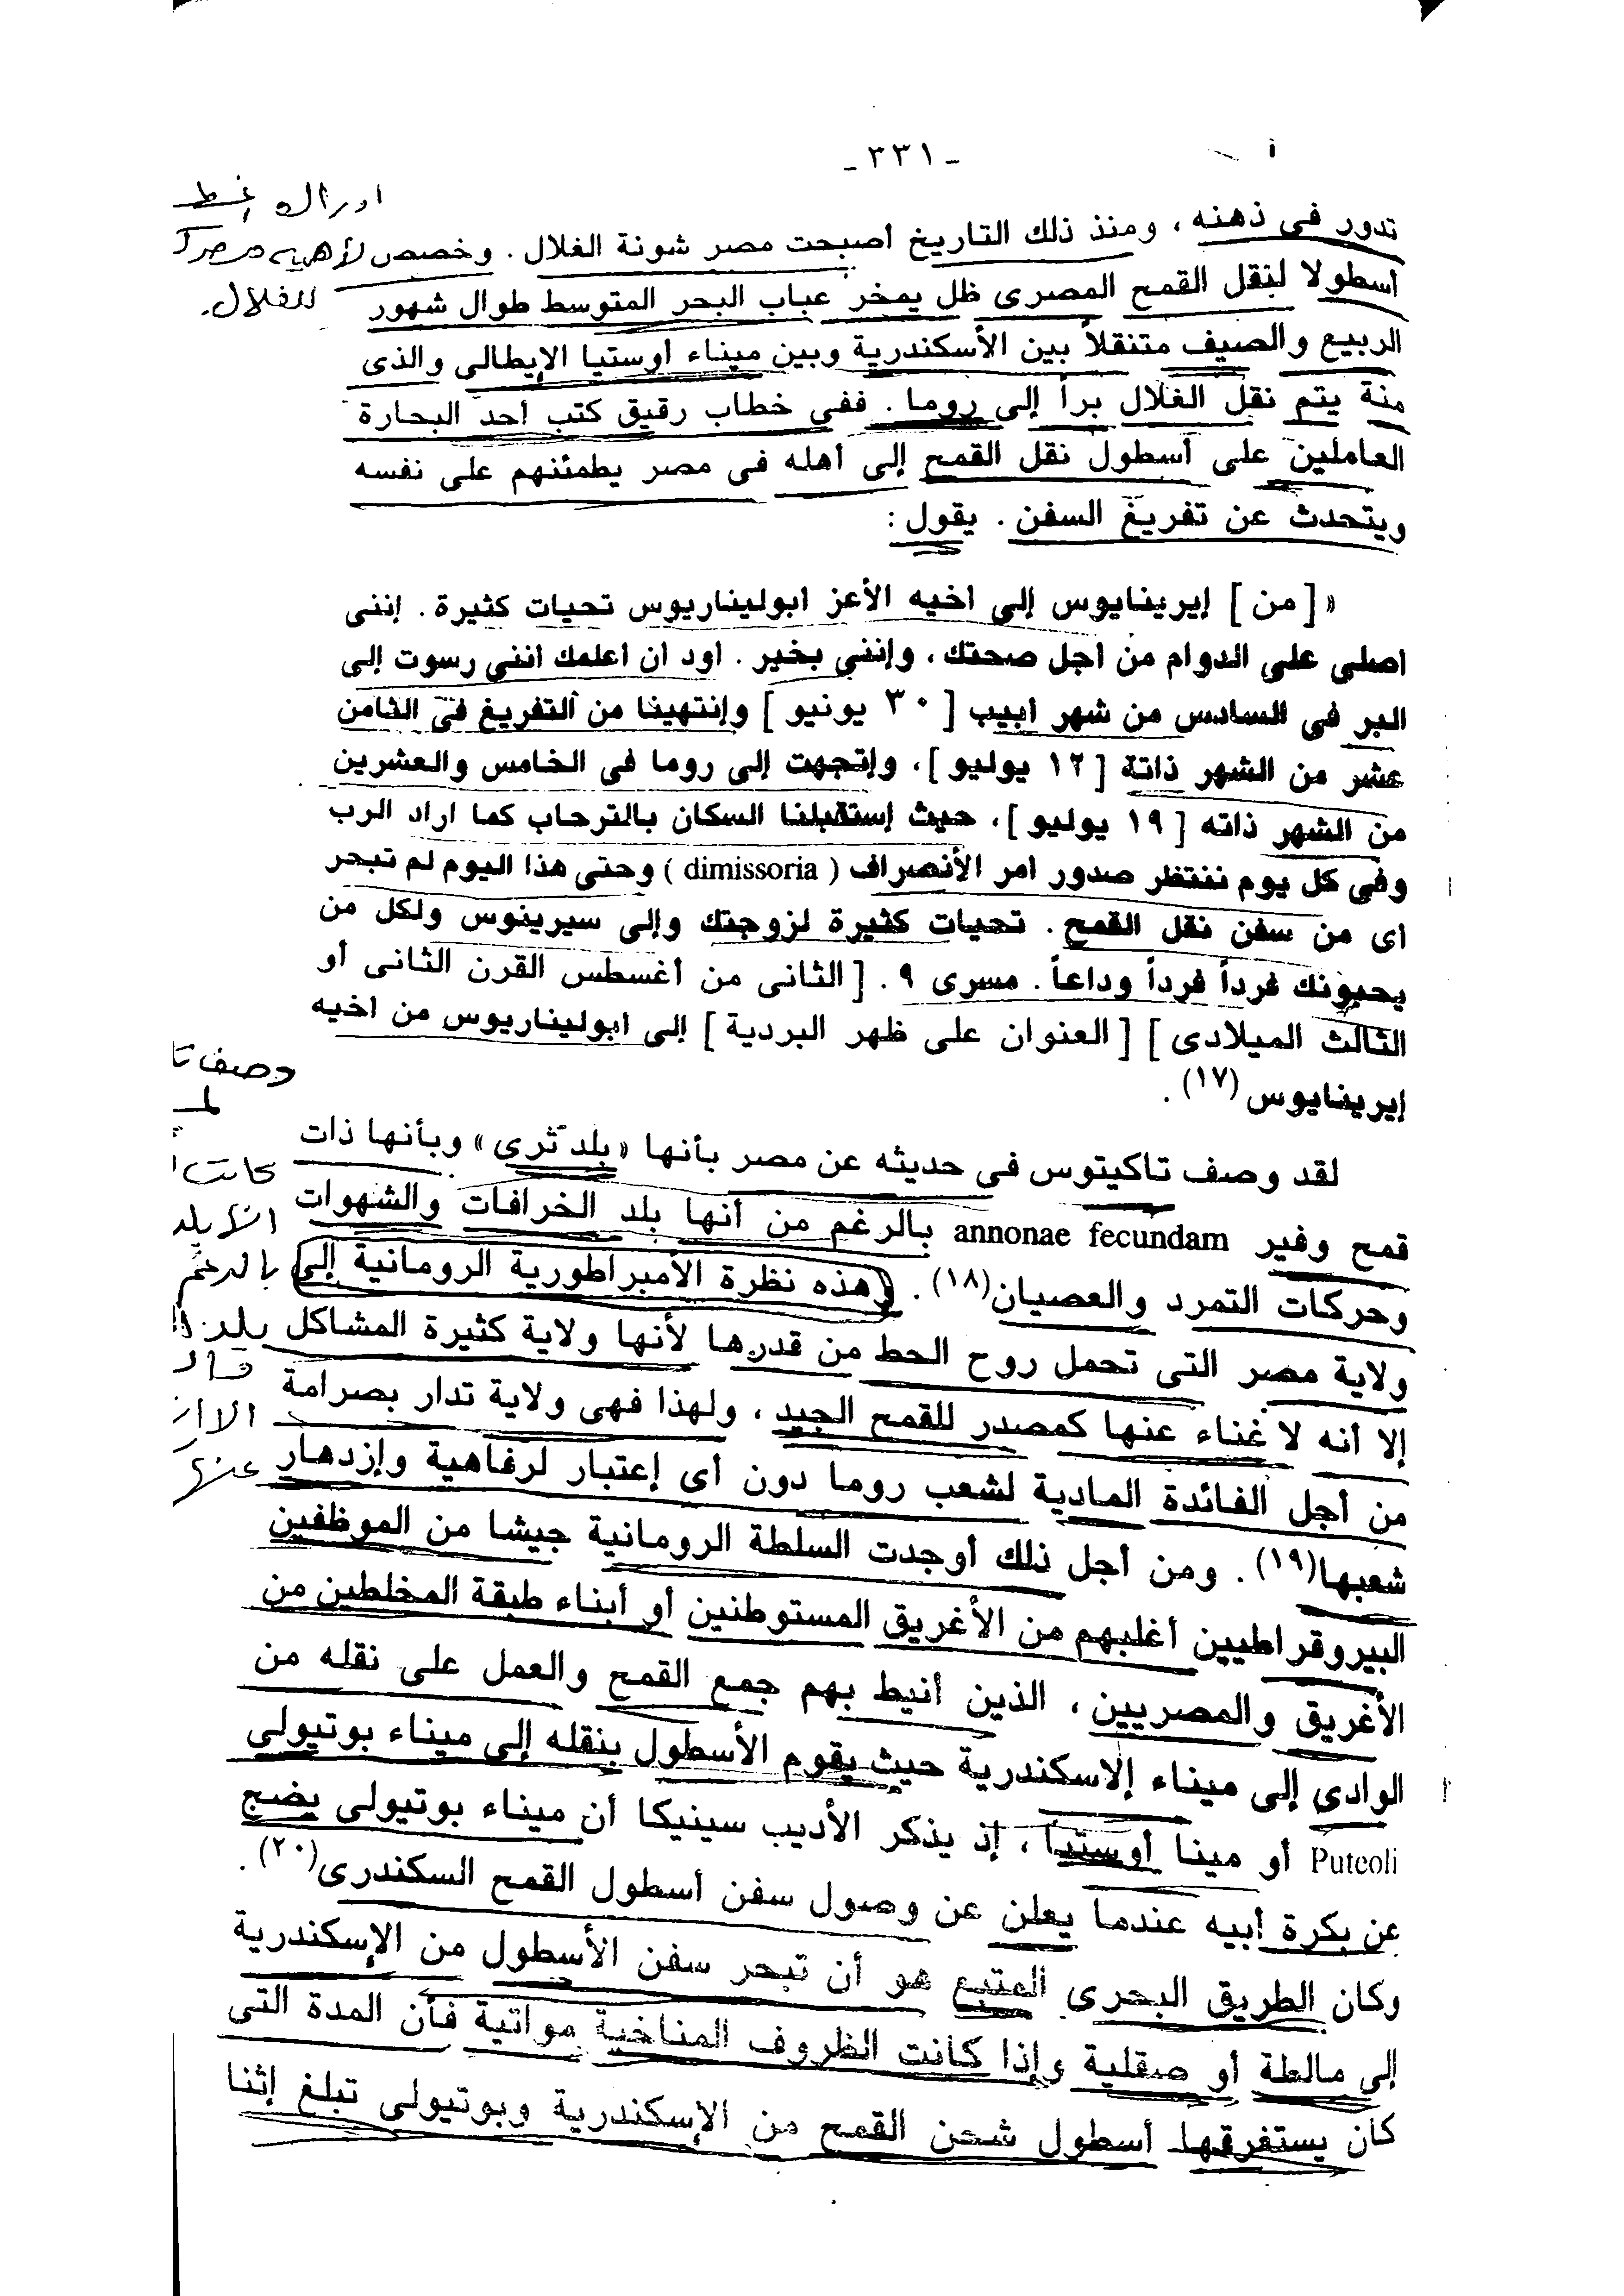 - ٣٣١ -
تدور فى ذهنه ، ومنذ ذلك التاريخ أصبحت مصر شونة الغلال . وخصص
أسطولا لنقل القمح المصرى ظل يمخر عباب البحر المتوسط طوال شهور
الربيع والصيف متنقلاً بين الأسكندرية وبين ميناء أوستيا الإيطالى والذى
منة يتم نقل الغلال برأ إلى روما . ففى خطاب رقيق كتب أحد البحارة
العاملين على أسطول نقل القمح إلى أهله فى مصر يطمئنهم على نفسه
ويتحدث عن تفريغ السفن . يقول :
« [ من ] إيرينايوس إلى اخيه الأعز ابوليناريوس تحيات كثيرة . إننى
اصلى على الدوام من اجل صحتك ، وإننى بخير . اود ان اعلمك اننى رسوت إلى
البر فى السادس من شهر ابيب [ ٣٠ يونيو ] وإنتهينا من التفريغ فى الثامن
عشر من الشهر ذاتة [ ١٢ يوليو ] ، وإتجهت إلى روما فى الخامس والعشرين
من الشهر ذاته [ ١٩ يوليو ] ، حيث إستقبلنا السكان بالترحاب كما اراد الرب
وفى كل يوم ننتظر صدور امر الأنصراف ( dimissoria ) وحتى هذا اليوم لم تبحر
اى من سفن نقل القمح . تحيات كثيرة لزوجتك وإلى سيرينوس ولكل من
يحبونك فرداً فرداً وداعاً . مسرى ٩ . [ الثانى من أغسطس القرن الثانى أو
الثالث الميلادى ] [ العنوان على ظهر البردية ] إلى ابوليناريوس من اخيه
إيرينايوس (١٧) .
لقد وصف تاكيتوس فى حديثه عن مصر بأنها « بلد ثرى » وبأنها ذات
قمح وفير annonae fecundam بالرغم من أنها بلد الخرافات والشهوات
وحركات التمرد والعصيان(١٨) . وهذه نظرة الأمبراطورية الرومانية إلى
ولاية مصر التى تحمل روح الحط من قدرها لأنها ولاية كثيرة المشاكل
إلا أنه لا غناء عنها كمصدر للقمح الجيد ، ولهذا فهى ولاية تدار بصرامة
من أجل الفائدة المادية لشعب روما دون أى إعتبار لرفاهية وإزدهار
شعبها(١٩) . ومن أجل ذلك أوجدت السلطة الرومانية جيشا من الموظفين
البيروقراطيين أغلبهم من الأغريق المستوطنين أو أبناء طبقة المخلطين من
الأغريق والمصريين ، الذين أنيط بهم جمع القمح والعمل على نقله من
الوادى إلى ميناء الاسكندرية حيث يقوم الأسطول بنقله إلى ميناء بوتيولى
Puteoli أو مينا أوستيا ، إذ يذكر الأديب سينيكا أن ميناء بوتيولى يضج
عن بكرة أبيه عندما يعلن عن وصول سفن أسطول القمح السكندرى(٢٠) .
وكان الطريق البحرى المتبع هو أن تبحر سفن الأسطول من الإسكندرية
إلى مالطة أو صقلية وإذا كانت الظروف المناخية مواتية فأن المدة التى
كان يستغرقها أسطول شحن القمح من الإسكندرية وبوتيولى تبلغ إثنا
للغلال.
وصف تا
كانت
بالرغم
عنها